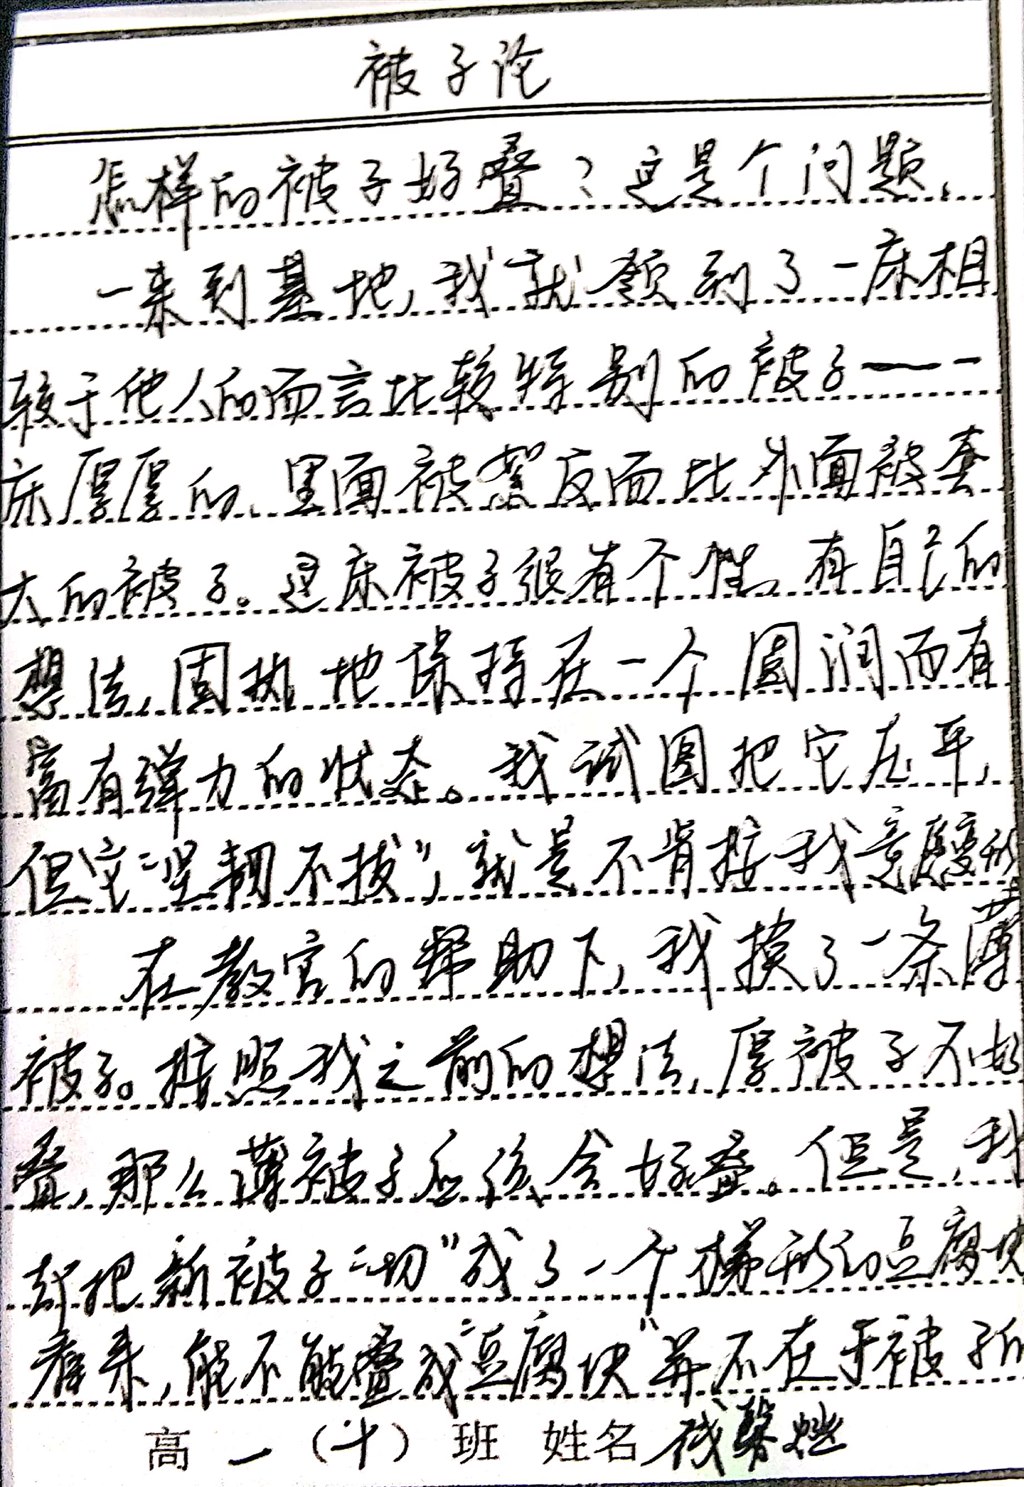 被子论
怎样的被子好叠？这是个问题。
一来到基地，我就领到了一床相
较于他人的而言比较特别的被子——一
床厚厚的、里面被絮反而比外面被套
大的被子。这床被子很有个性，有自己的
想法，固执地保持在一个圆润而有
富有弹力的状态。我试图把它压平，
但它“坚韧不拔”，就是不肯按我意愿变形
在教官的帮助下，我换了一条薄
被子。按照我之前的想法，厚被子不好
叠，那么薄被子应该会好叠。但是，我
却把新被子“切”成了一个梯形的豆腐块
看来，能不能叠成“豆腐块”并不在于被子的
高一（十）班 姓名